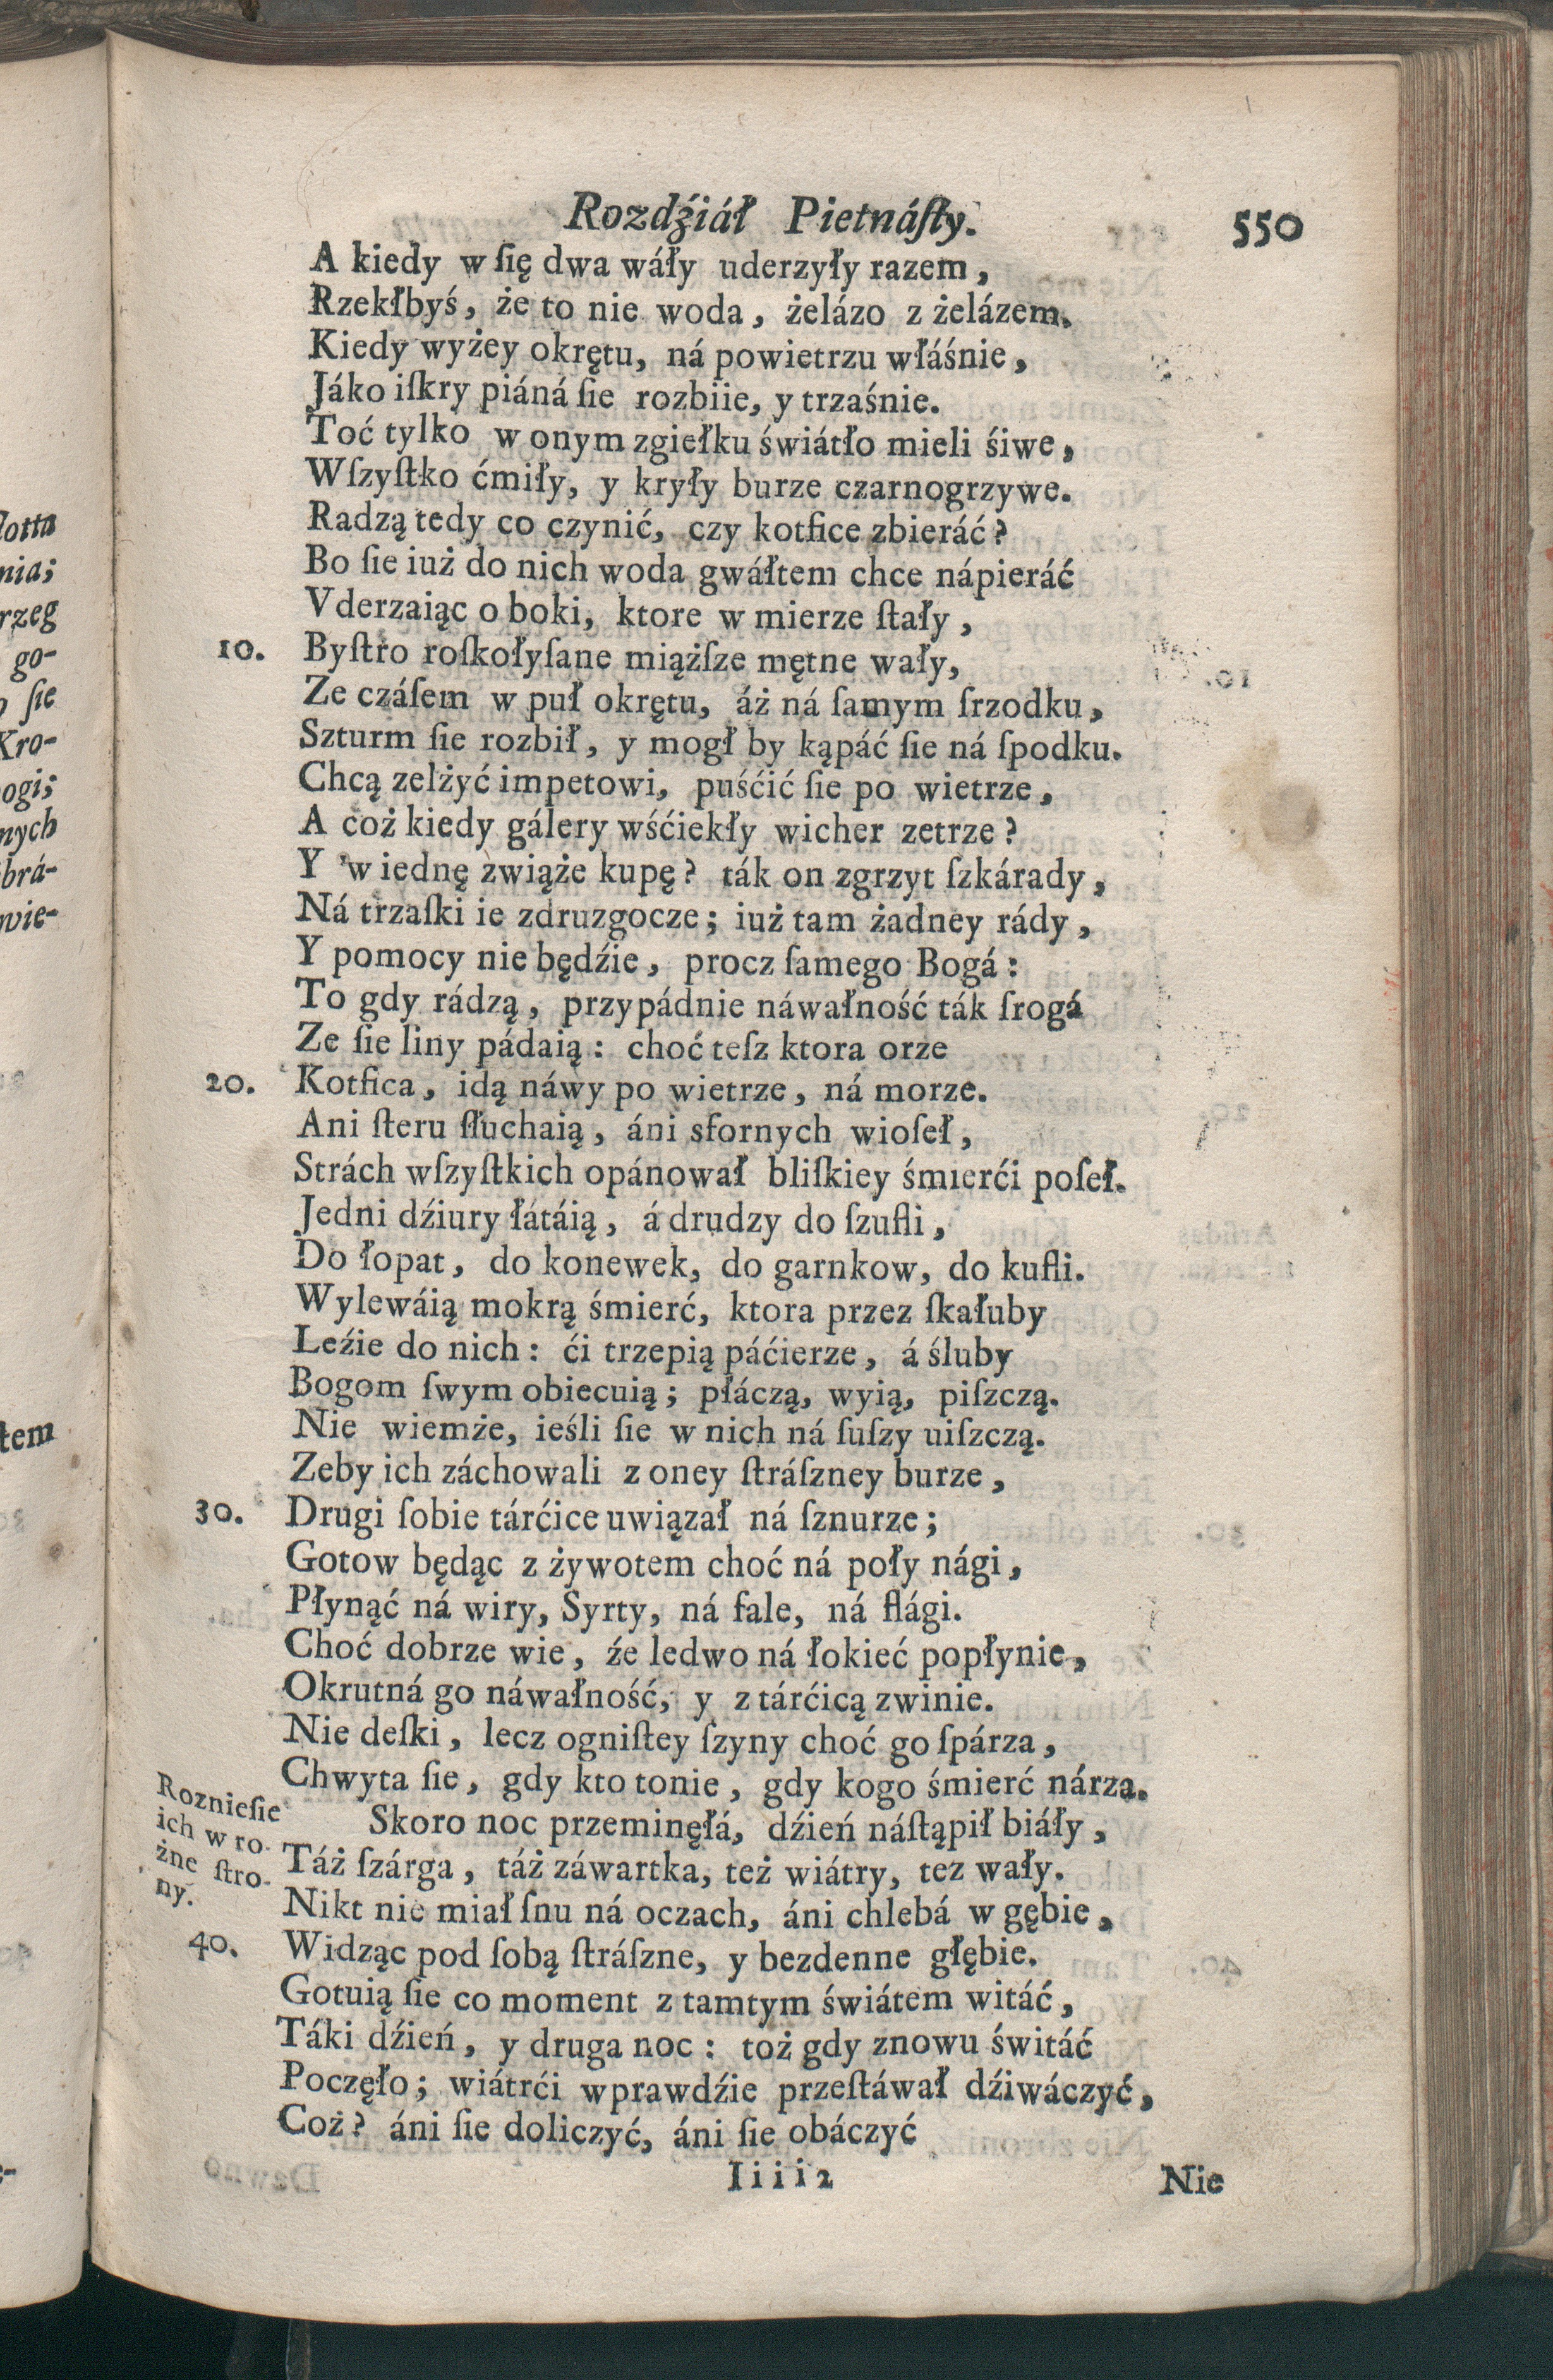 Rozdźiáł Pietnáſty. 550
A kiedy w ſię dwa wáły uderzyły razem,
Rzekłbyś, że to nie woda, żelázo z żelázem.
Kiedy wyżey okrętu, ná powietrzu właśnie,
Jáko iſkry piáná ſie rozbiie, y trzaśnie.
Toć tylko w onym zgiełku świátło mieli śiwe,
Wſzyſtko ćmiły, y kryły burze czarnogrzywe.
Radzą tedy co czynić, czy kotfice zbieráć?
Bo ſie iuż do nich woda gwáłtem chce nápieráć
Vderzaiąc o boki, ktore w mierze ſtały,
10. Byſtro roſkołyſane miążſze mętne wały,
Ze czáſem w puł okrętu, áż ná ſamym ſrzodku,
Szturm ſie rozbił, y mogł by kąpáć ſie ná ſpodku.
Chcą zelżyć impetowi, puśćić ſie po wietrze,
A coż kiedy gálery wśćiekły wicher zetrze?
Y w iednę zwiąże kupę? ták on zgrzyt ſzkárady,
Ná trzaſki ie zdruzgocze; iuż tam żadney rády,
Y pomocy nie będźie, procz ſamego Bogá:
To gdy rádzą, przypádnie náwałność ták ſrogá
Ze ſie liny pádaią: choć teſz ktora orze
20. Kotfica, idą náwy po wietrze, ná morze.
Ani ſteru ſłuchaią, áni sfornych wioſeł,
Strách wſzyſtkich opánował bliſkiey śmierći poſeł.
Jedni dźiury łátáią, á drudzy do ſzufli,
Do łopat, do konewek, do garnkow, do kufli.
Wylewáią mokrą śmierć, ktora przez ſkałuby
Leźie do nich: ći trzepią páćierze, á śluby
Bogom ſwym obiecuią; płáczą, wyią, piſzczą.
Nie wiemże, ieśli ſie w nich ná ſuſzy uiſzczą.
Zeby ich záchowali z oney ſtráſzney burze,
30. Drugi ſobie tárćice uwiązał ná ſznurze;
Gotow będąc z żywotem choć ná poły nági,
Płynąć ná wiry, Syrty, ná fale, ná flági.
Choć dobrze wie, źe ledwo ná łokieć popłynie,
Okrutná go náwałność, y z tárćicą zwinie.
Nie deſki, lecz ogniſtey ſzyny choć go ſpárza,
Chwyta ſie, gdy kto tonie, gdy kogo śmierć nárza.
Roznieſie
ich w ro-
żne ſtro-
ny.
Skoro noc przeminęłá, dźień náſtąpił biáły,
Táż ſzárga, táż záwartka, też wiátry, tez wały.
Nikt nie miał ſnu ná oczach, áni chlebá w gębie,
40. Widząc pod ſobą ſtráſzne, y bezdenne głębie.
Gotuią ſie co moment z tamtym świátem witáć,
Táki dźień, y druga noc: toż gdy znowu świtáć
Poczęło; wiátrći wprawdźie przeſtáwał dźiwáczyć,
Coż? áni ſie doliczyć, áni ſie obáczyć
Iiii2 Nie